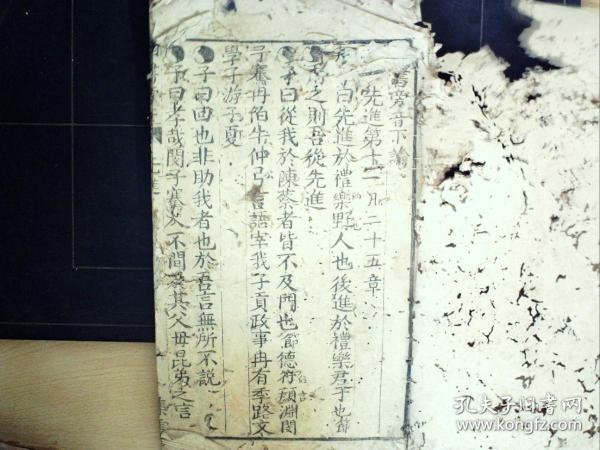 旁音下論
先進第十一 凡二十五章
子曰先進於禮樂野人也後進於禮樂君子也節
用之則吾從先進
子曰從我於陳蔡者皆不及門也節德行顔淵閔
子騫冉伯牛仲弓言語宰我子貢政事冉有季路文
學子游子夏
子曰回也非助我者也於吾言無所不說
子曰孝哉閔子騫人不間於其父母昆弟之言
孔夫子旧书网
www.kongfz.com